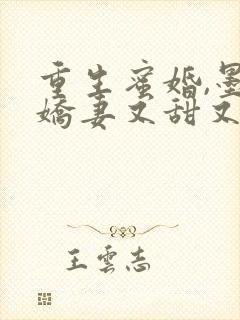 重生蜜婚,墨
嬌妻又甜又
王雲志